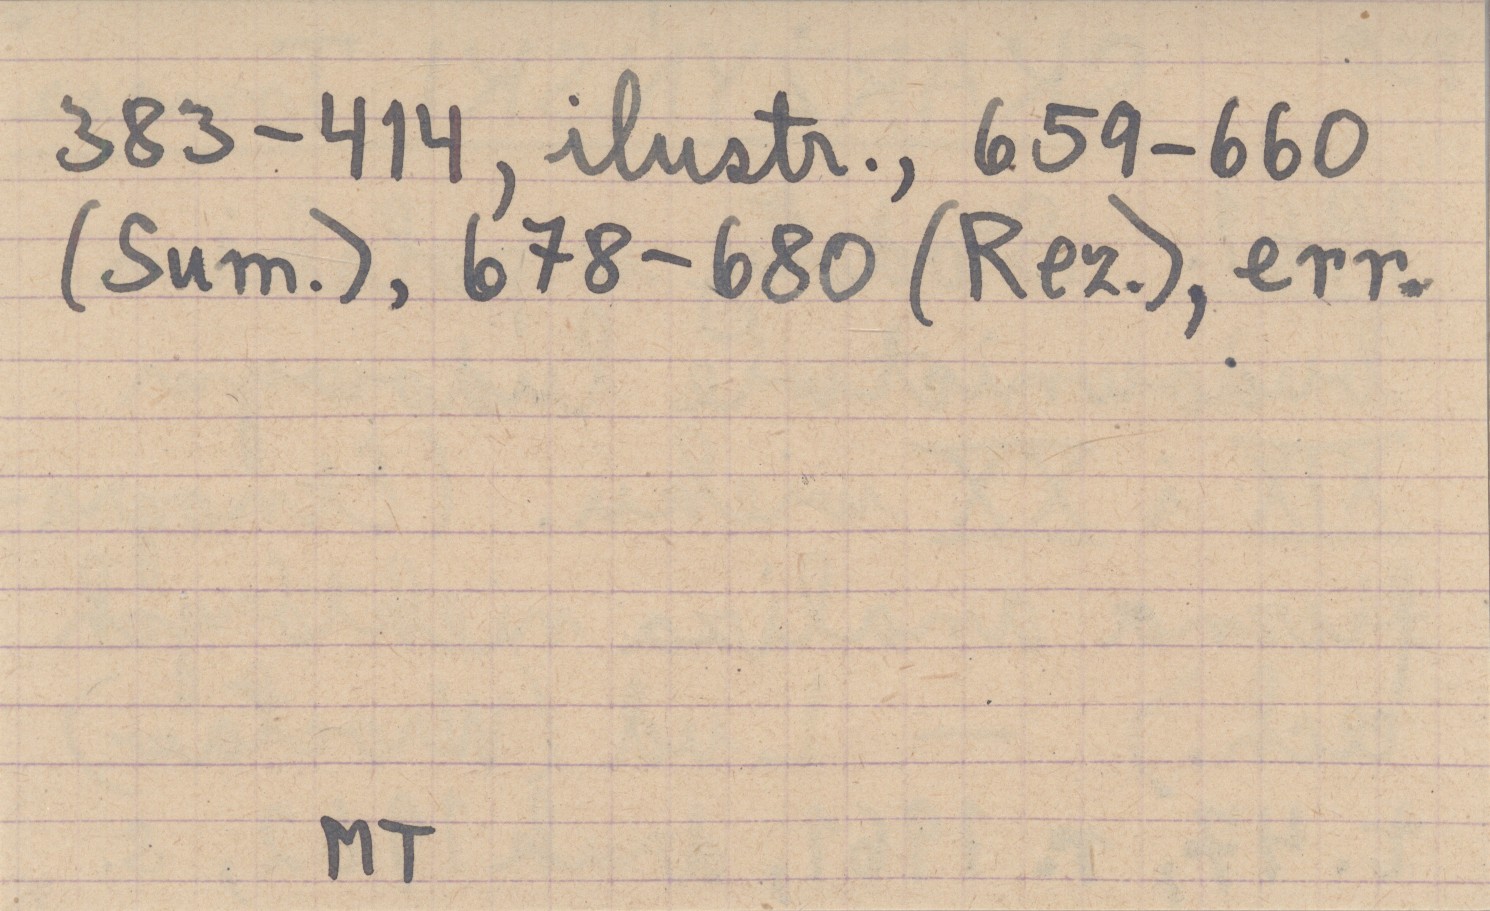 383-414, ilustr., 659-660
(Sum.), 678-680 (Rez.), err.
MT